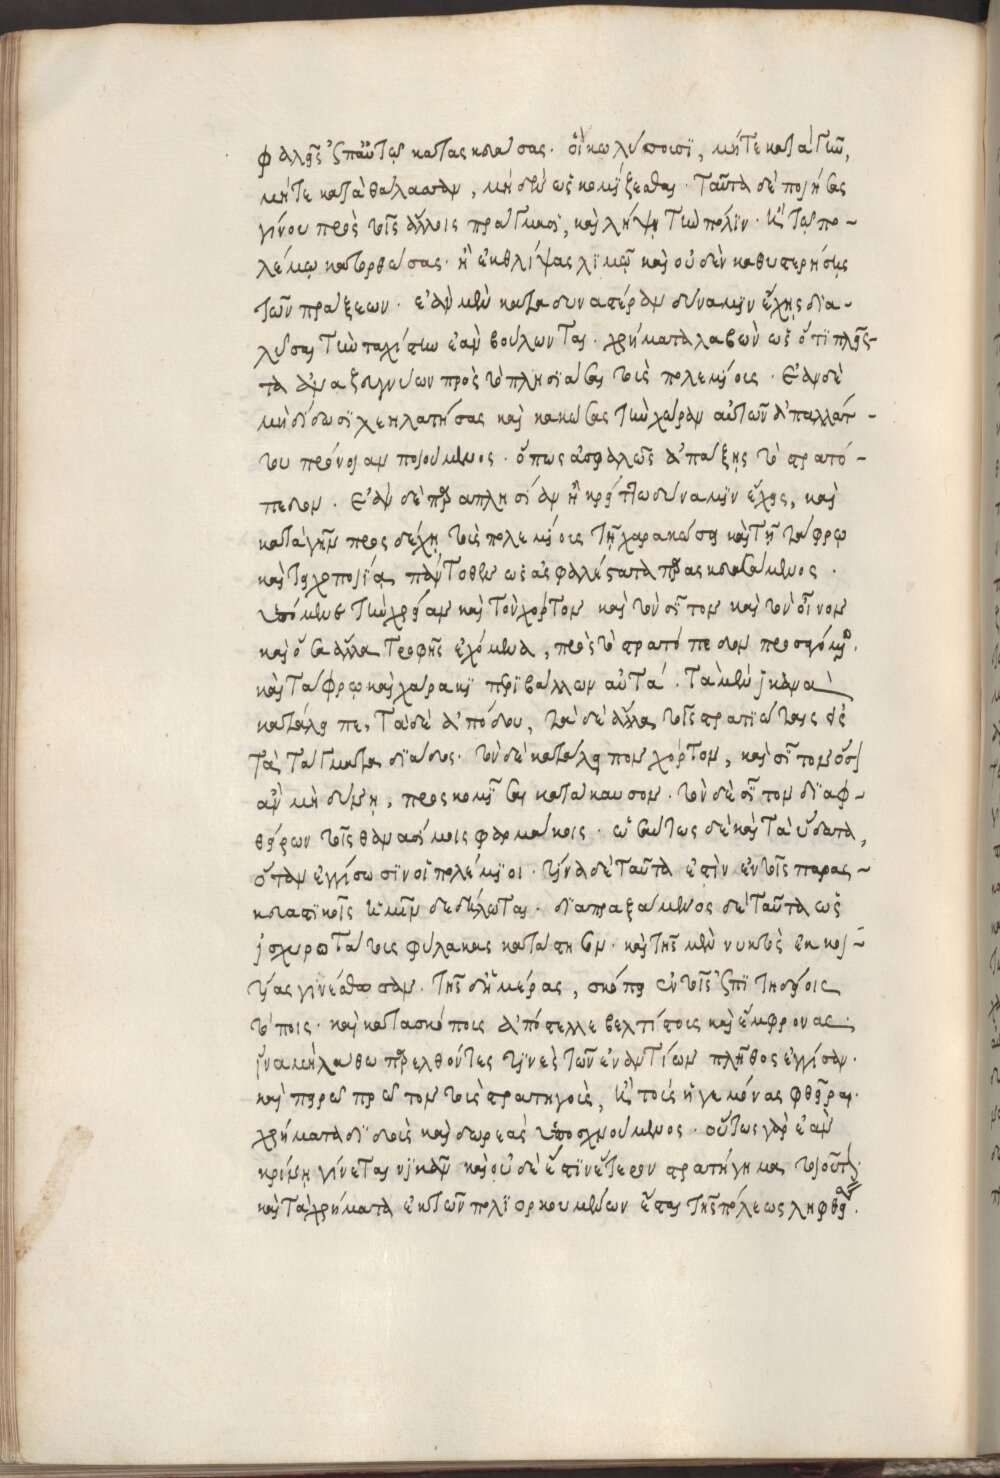 φαλεῖς ἐπ' αὐτῷ κατασκευάσας. οἳ κωλύσουσι, μήτε κατὰ γῆν,
μήτε κατὰ θάλασσαν, μηδὲν εἰσκομίζεσθαι. ταῦτα δὲ ποιήσας
γίνου πρὸς τοῖς ἄλλοις πράγμασι, καὶ λήψῃ τὴν πόλιν. ἢ τῷ πο-
λέμῳ κατορθώσας. ἢ ἐκθλίψας λιμῷ καὶ οὐδὲν καθυστερήσεις
τῶν πράξεων. ἐὰν μὲν καταδυναστέραν δύναμιν ἔχῃς δια-
λύσαι τὴν ταχίστην ἐὰν βούλωνται. χρήματα λαβὼν ὡς ὅτι πλεῖς-
τα ἀναζευγνύων πρὸς τὸ πλησιάσαι τοῖς πολεμίοις. ἐὰν δὲ
μὴ διδῶσι λεηλατήσας καὶ κακώσας τὴν χώραν αὐτῶν ἀπαλλάτ-
του πρόνοιαν ποιούμενος. ὅπως ἀσφαλῶς ἀπάξῃς τὸ στρατό-
πεδον. ἐὰν δὲ παραπλησίαν ἢ κρείττω δύναμιν ἔχῃς, καὶ
κατὰ γῆν προσδέχῃ τοὺς πολεμίους τῇ χαρακώσει καὶ τῇ τάφρῳ
καὶ τειχοποιίᾳ πάντοθεν ὡς ἀσφαλέστατα παρασκευασάμενος.
ὑπόμενε τὴν χρείαν καὶ τὸν χόρτον καὶ τὸν σῖτον καὶ τὸν οἶνον
καὶ ὅσα ἄλλα τροφῆς ἐχόμενα, πρὸς τὸ στρατόπεδον προσφόμ.
καὶ τάφρῳ καὶ χάρακι περιβάλλων αὐτά. τὰ μὲν ἱκανὰ
κατάλειπε, τὰ δὲ ἀπόδου, τὰ δὲ ἄλλα τοῖς στρατιώταις εἰς
τὰ τάγματα διάδος. τὸν δὲ κατάλειπον χόρτον, καὶ σῖτον ὅσον
ἂν μὴ δύνῃ, προσκομίσαι κατάκαυσον. τὸν δὲ σῖτον διαφ-
θείρων τοῖς θανασίμοις φαρμάκοις. ὡσαύτως δὲ καὶ τὰ ὕδατα,
ὅταν ἐγγίσωσιν οἱ πολέμιοι. τίνα δὲ ταῦτα ἐστὶν ἐν τοῖς παρας-
κευαστικοῖς ἡμῖν δεδήλωται. διαπραξάμενος δὲ ταῦτα ὡς
ἰσχυροτάτους φύλακας κατάστησον. καὶ τῆς μὲν νυκτὸς ἐκ κοι-
τίας γινέσθωσαν. τῆς δ' ἡμέρας, σκόπει ἐν τοῖς ἐπιτηδείοις
τόποις. καὶ κατασκόπους ἀπόστελλε βελτίστους καὶ ἔμφρονας.
ἵνα μὴ λάθωσι παρελθόντες τινὲς τῶν ἐναντίων πλῆθος ἐγγίσαν.
καὶ πειρῶ πρῶτον τοὺς στρατηγοὺς, ἢ τοὺς ἡγεμόνας φθεῖραι.
χρήματα διδοὺς καὶ δωρεὰς ὑπισχνούμενος. οὕτως γὰρ ἐὰν
κρίνῃ γίνεται νικᾶν καὶ οὐδὲ ἔστιν ἕτερον στρατήγημα τοιοῦτο.
καὶ τὰ χρήματα ἐκ τῶν πολιορκουμένων ἔσται τῆς πόλεως ληφθείσης.